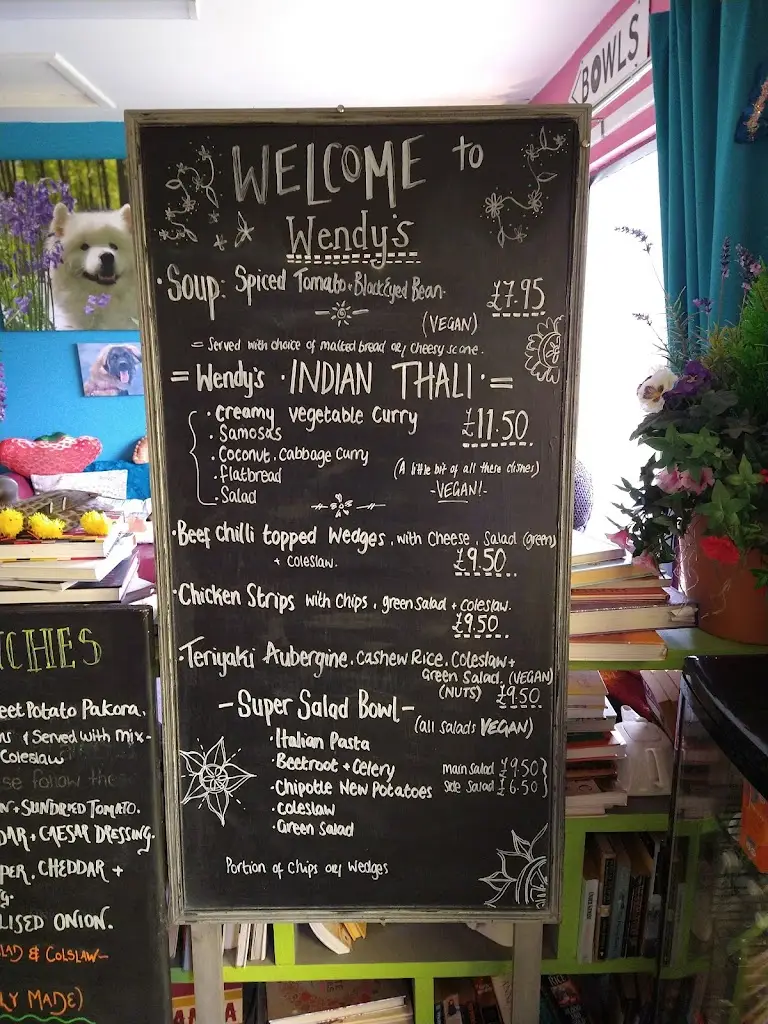 BOWLS
WELCOME to
Wendy's
· Soup: Spiced Tomato + Black Eyed Bean. £7.95
(VEGAN)
= Served with choice of malted bread or cheesy scone.
= Wendy's · INDIAN THALI · =
· Creamy vegetable Curry £11.50
· Samosas
· Coconut, Cabbage Curry
· flatbread
· Salad
(A little bit of all these dishes)
- VEGAN! -
· Beef chilli topped Wedges, with Cheese, Salad (green)
+ coleslaw. £9.50
· Chicken Strips with Chips, green salad + coleslaw.
£9.50
· Teriyaki Aubergine, Cashew Rice, Coleslaw +
Green Salad. (VEGAN)
(NUTS) £9.50
- Super Salad Bowl -
(all salads VEGAN)
· Italian Pasta
· Beetroot + Celery main salad £9.50
· Chipotle New Potatoes side salad £6.50
· coleslaw
· Green Salad
Portion of Chips or Wedges
CHES
eet Potato Pakora,
ns & Served with mix-
Coleslaw
se follow the
N + SUNDRIED TOMATO.
DAR + CAESAR DRESSING.
PER, CHEDDAR +
LISED ONION.
LAD & COLSLAW-
LY MADE)